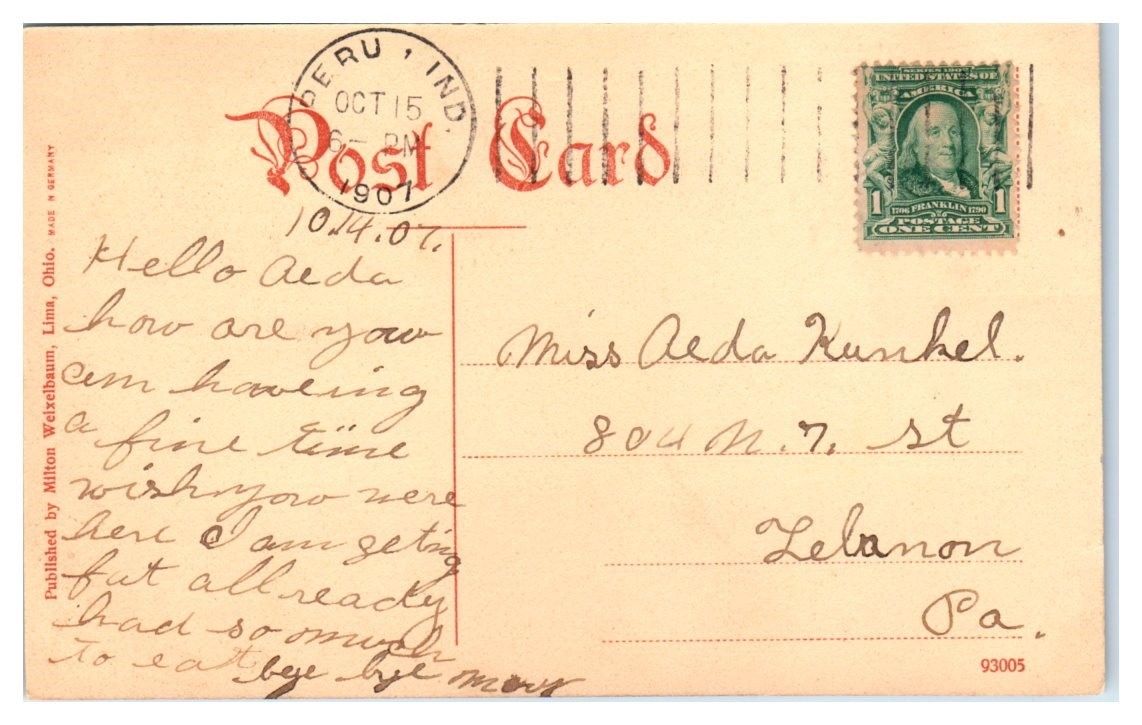 PERU, IND.
OCT 15
6 - PM
1907
Post Card
SERIES 1902
UNITED STATES OF
AMERICA
1 1
1706 FRANKLIN 1790
POSTAGE
ONE CENT
Published by Milton Weixelbaum, Lima, Ohio. MADE IN GERMANY
10.14.07.
Hello Aeda
how are you
am haveing
a fine time
wish you were
here I am geting
fat all ready
had so much
to eat
bye bye Mary
Miss Aeda Kunkel.
804 N. 7, St
Lebanon
Pa.
93005